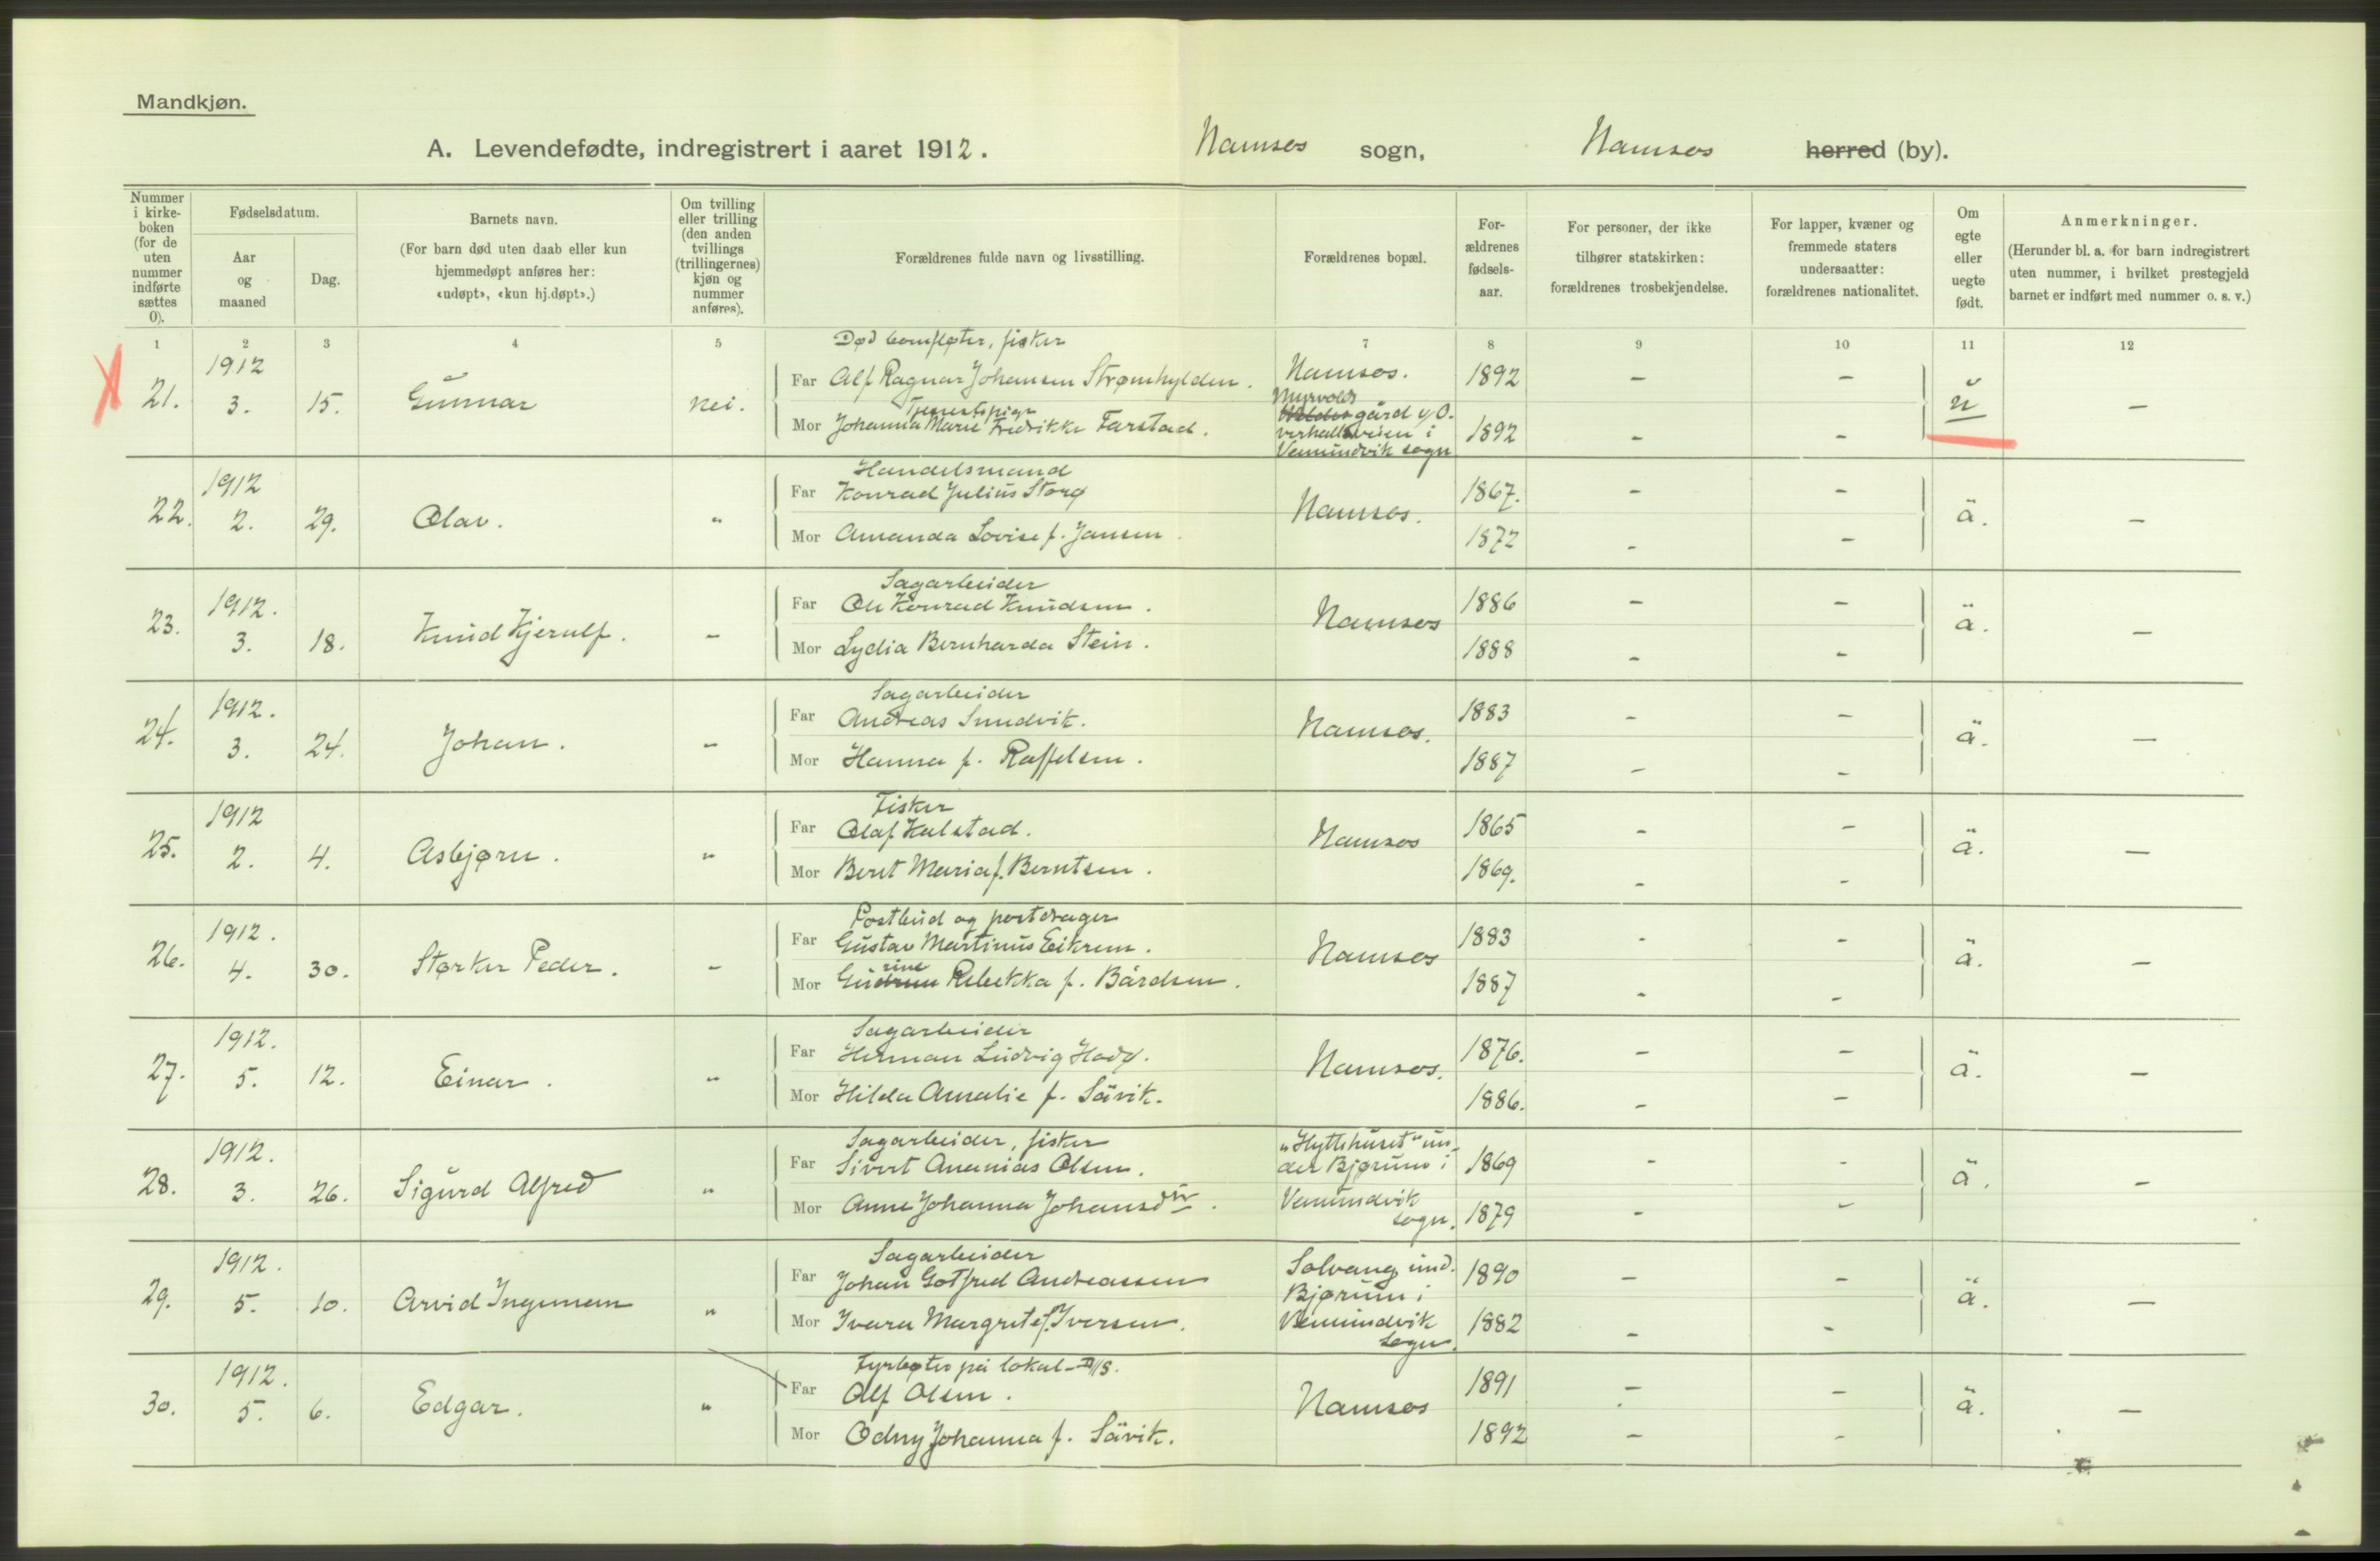 Mandkjøn.
A. Levendefødte, indregistrert i aaret 1912. Namsos sogn, Namsos herred (by).
Nummer i kirke-boken (for de uten nummer indførte sættes 0).
Fødselsdatum.
Aar og maaned
Dag.
Barnets navn.
(For barn død uten daab eller kun hjemmedøpt anføres her: «udøpt», «kun hj.døpt».)
Om tvilling eller trilling (den anden tvillings (trillingernes) kjøn og nummer anføres).
Forældrenes fulde navn og livsstilling.
Forældrenes bopæl.
For-ældrenes fødsels-aar.
For personer, der ikke tilhører statskirken: forældrenes trosbekjendelse.
For lapper, kvæner og fremmede staters undersaatter: forældrenes nationalitet.
Om egte eller uegte født.
Anmerkninger.
(Herunder bl. a. for barn indregistrert uten nummer, i hvilket prestegjeld barnet er indført med nummer o. s. v.)
1 2 3 4 5 7 8 9 10 11 12
21. 1912 3. 15. Gunnar nei.
fisker
Far Alf Ragnar Johansen Strømhylden. Namsos. 1892 – –
Tjenestepige
Mor Johanna Marie Fredrikke Farstad. Myrvolds gård v/ O-verhallsveien i Vemundvik sogn 1892 – –
u –
22. 1912 2. 29. Olav. "
Handelsmand
Far Konrad Julius Storø Namsos. 1867. – –
Mor Amanda Lovise f. Jansen. 1872 – –
ä. –
23. 1912. 3. 18. Knud Kjerulf. –
Sagarbeider
Far Ole Konrad Knudsen. Namsos 1886 – –
Mor Lydia Bernharda Stein. 1888 – –
ä. –
24. 1912. 3. 24. Johan. –
Sagarbeider
Far Andreas Sundvik. Namsos. 1883 – –
Mor Hanna f. Raffelsen. 1887 – –
ä. –
25. 1912 2. 4. Asbjørn. "
Fisker
Far Olaf Kalstad. Namsos 1865 – –
Mor Beret Maria f. Berntsen. 1869. – –
ä. –
26. 1912. 4. 30. Størker Peder. –
Postbud og postdrager
Far Gustav Martinus Eikrem. Namsos 1883 – –
rine
Mor Gudrun Rebekka f. Bårdsen. 1887 – –
ä. –
27. 1912. 5. 12. Einar. "
Sagarbeider
Far Herman Ludvig Hadø. Namsos. 1876. – –
Mor Hilda Amalie f. Sävik. 1886. – –
ä. –
28. 1912. 3. 26. Sigurd Alfred "
Sagarbeider, fisker
Far Sivert Ananias Olsen. "Hyttehuset" un-der Bjørum i 1869 – –
Mor Anne Johanna Johansdtr. Vemundvik sogn. 1879 – –
ä. –
29. 1912. 5. 10. Arvid Ingemann "
Sagarbeider
Far Johan Gotfred Andreassen Solvang und. Bjørum i 1890 – –
Mor Ivara Margrete f. Iversen. Vemundvik sogn. 1882 – –
ä. –
30. 1912. 5. 6. Edgar. "
Fyrbøter på lokal-D/S.
Far Alf Olsen. Namsos 1891 – –
Mor Odny Johanna f. Sävik. 1892 – –
ä. –